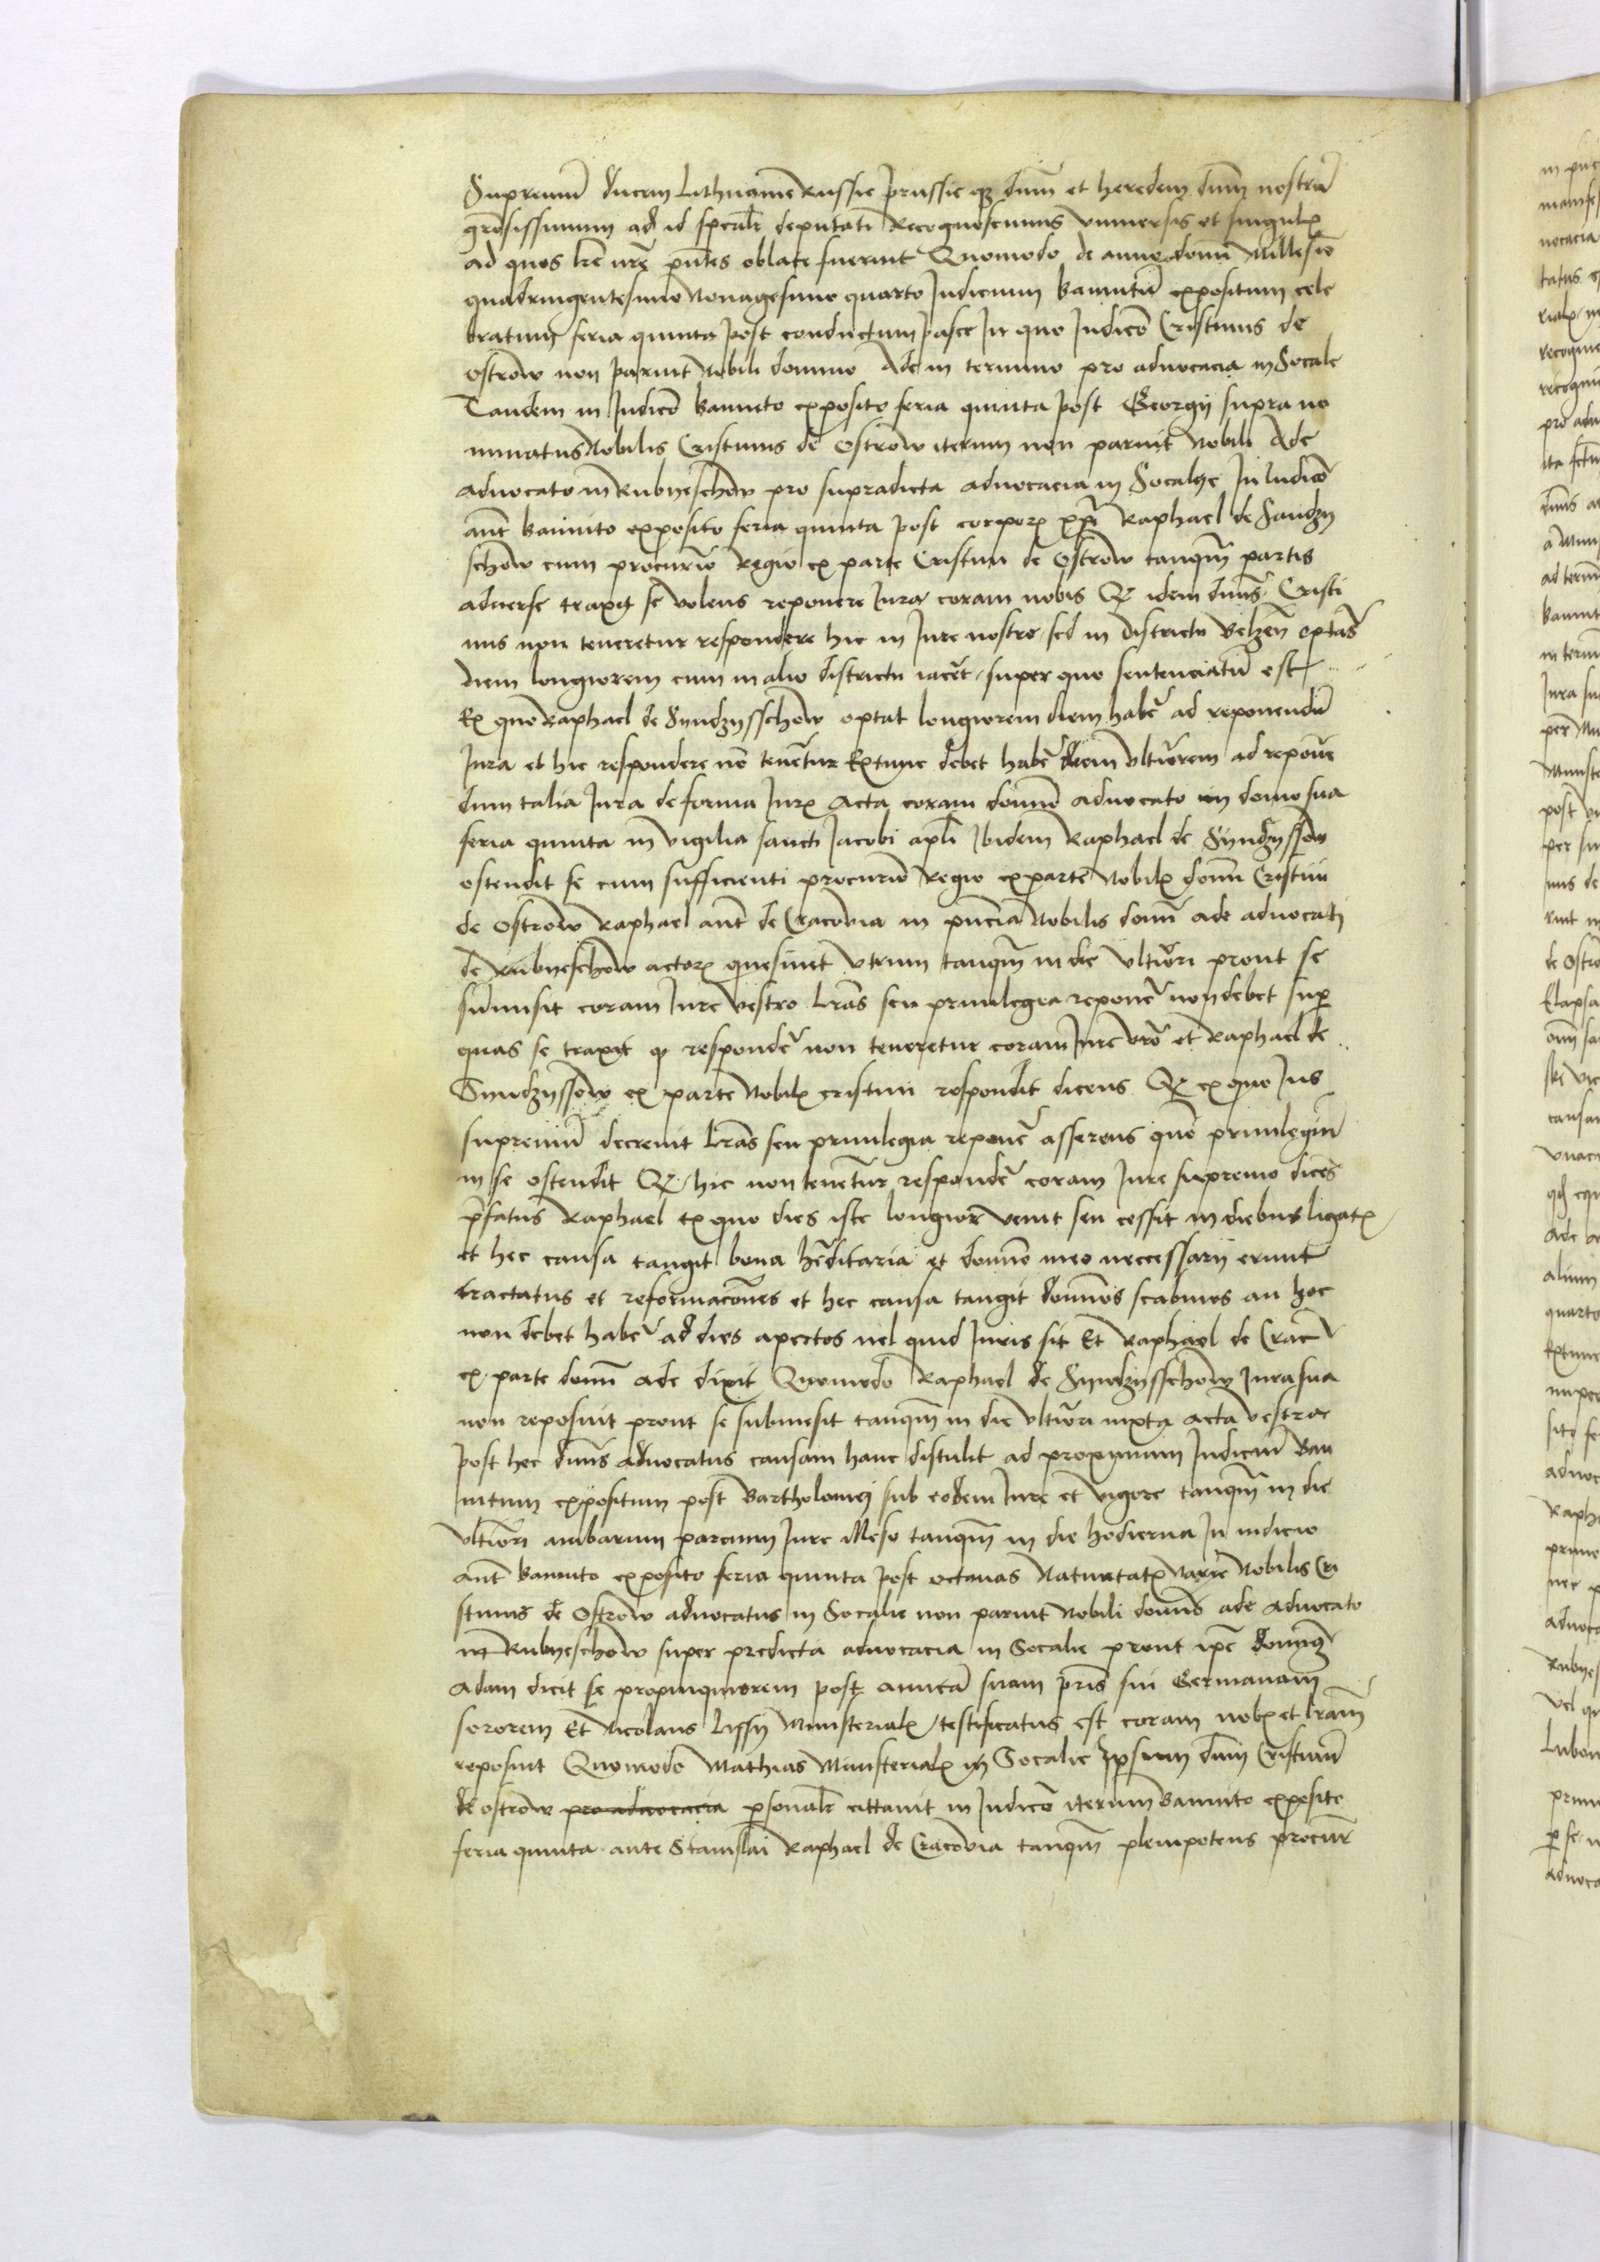 Supremū ducem Lithuanie Russie prussie qȝ dnm̄ et heredem dnm̄ nostrū
grōsissimum ad id spēalr̄ deputati Recognoscimus vniuersis et singulis
ad quos lrē nr̄e pn̄tes oblate fuerint Quomodo de anno domī Millesīo
quadringentesimo Nonagesimo quarto Judicium bannitū expositum cele
bratum feria quinta post conductum pasce In quo Judicō Cristinus de
Ostrow non paruit Nobili domino Ade in termino pro aduocacia in Socale
Tandem in Judicō bannito exposito feria quinta post Georgij supra no
minatus Nobilis Cristinus de Ostrow iterum non paruit Nobili Ade
aduocato in Rubyeschow pro supradicta aduocacia in Socalye In Iudicō
aut̄ bannito exposito feria quinta post corporis xpi Raphael de Sandzy
schow cum procurio Regio ex parte Cristini de Ostrow tanqm̄ partis
aduerse traxit se volens reponere Jura coram nobis Qȝ idem dnūs Cristi
nus non teneretur respondere hic in Jure nostro sed in districtu Belzen̄ optās
diem longiorem cum in alio districtu iacet super quo sentenciatū est
Ex quo Raphael de Syndzysschow optat longiorem diem habē ad reponendū
Jura et hic respondere nō tenetur Extunc debet habē diem vltiorem ad repone
dum talia Jura de forma Juris Acta coram domīo aduocato in domo sua
feria quinta in vigilia sancti Jacobi apli Ibidem Raphael de Syndzyssow
ostendit se cum sufficienti procurio Regio ex parte Nobilis domī Cristini
de Ostrow Raphael aut̄ de Cracovia in pn̄cia Nobilis domī ade aduocati
de Rubyeschow actoris quesiuit vtrum tanqm̄ in die vltiori prout se
submisit coram Jure vestro lrās seu priuilegia reponē non debet sup
quas se traxit qȝ respondē non teneretur coram Jure vrō et Raphael de
Syndzyssow ex parte Nobilis cristini respondit dicens Qȝ ex quo Jus
supremū decreuit lrās seu priuilegia reponē asserens quō priuilegiū
in se ostendit Qȝ hic non tenetur respondē coram Jure supremo dicēs
pfatus Raphael ex quo dies iste longior venit seu cessit in diebus ligatis
et hec causa tangit bona hēditaria et domīo meo necessarij erunt
tractatus et reformacōnes et hec causa tangit domīos scabinos an hoc
non debet habē ad dies apertos uel quid Juris sit Et Raphael de Crac̄
ex parte domī ade dixit Quomodo Raphael de Syndzysschow Jura sua
non reposuit prout se submisit tanqm̄ in die vltiori iuxta acta vestra
post hec dnūs aduocatus causam hanc distulit ad proximum Judiciū Ban
nitum expositum post Bartholomei sub eodem Jure et vigore tanqm̄ in die
vltiori ambarum parcium Jure illeso tanqm̄ in die hodierna In iudicio
aut̄ bannito exposito feria quinta post octauas Natiuitatis Marie Nobilis Cri
stinus de Ostrow aduocatus in Socalie non paruit Nobili domīo ade aduocato
in Rubyeschow super predicta aduocacia in Socalie prout ipē domīus
Adam dicit se propinquiorem post amitā suam pris sui Germanam
sororem Et Nicolaus Lissy Ministerialis testificatus est coram nobis et lrām
reposuit Quomodo Mathias Ministerialis in Socalie Ipsum dnm̄ Cristinū
de ostrow pro aduocacia psonalr̄ cittauit in Judicō iterum Bannito exposito
feria quinta ante Stanislai Raphael de Cracovia tanqm̄ plenipotens procur̄